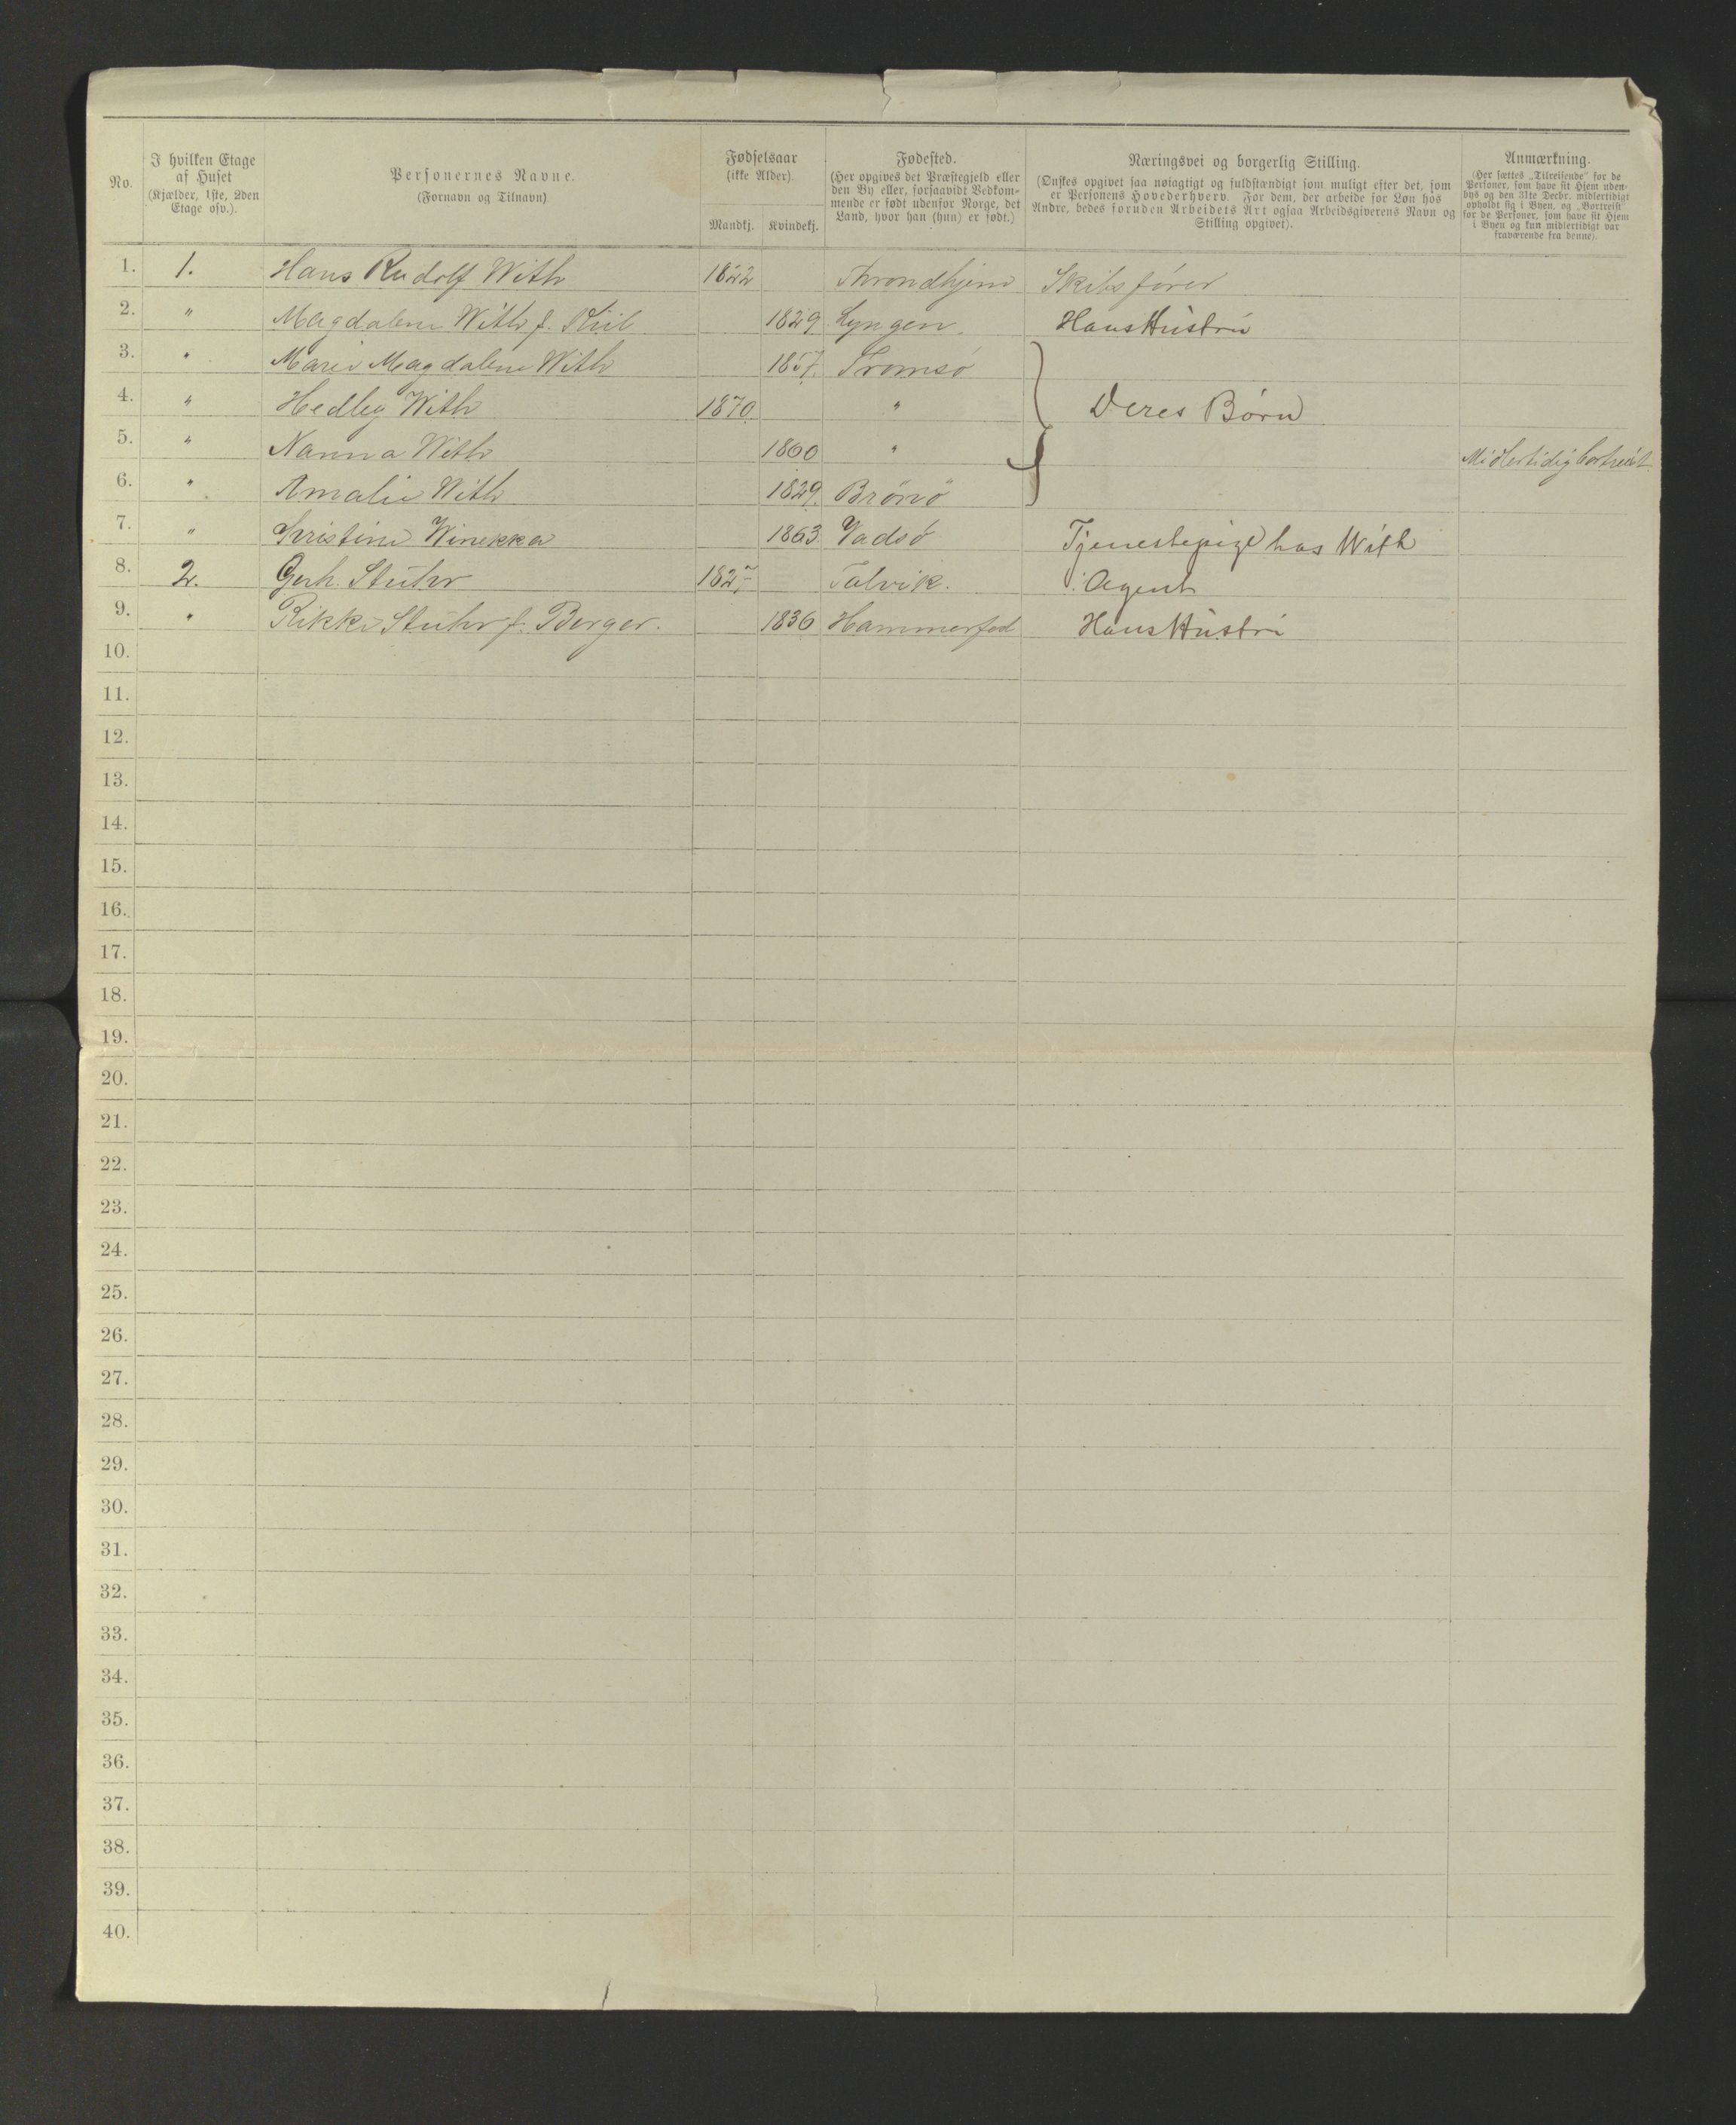 No.
I hvilken Etage
af Huset
(Kjælder, 1ste, 2den
Etage osv.).
Personernes Navne.
(Fornavn og Tilnavn)
Fødselsaar
(ikke Alder).
Mandkj. Kvindekj.
Fødested.
(Her opgives det Præstegjeld eller
den By eller, forsaavidt Vedkom-
mende er født udenfor Norge, det
Land, hvor han (hun) er født.)
Næringsvei og borgerlig Stilling.
(Ønskes opgivet saa nøiagtigt og fuldstændigt som muligt efter det, som
er Personens Hovederhverv. For dem, der arbeide for Løn hos
Andre, bedes foruden Arbeidets Art ogsaa Arbeidsgiverens Navn og
Stilling opgivet).
Anmærkning.
(Her sættes „Tilreisende" for de
Personer, som have sit Hjem uden-
bys og den 31te Decbr. midlertidigt
opholdt sig i Byen, og „Bortreist"
for de Personer, som have sit Hjem
i Byen og kun midlertidigt var
fraværende fra denne).
1. 1. Hans Rudolf With 1822 Throndhjem Skibsfører
2. " Magdalene With f. 1829 Lyngen. Hans Hustru
3. " Marie Magdalene With 1857. Tromsø
4. " Hedley With 1870. " Deres Børn
5. " Nanna With 1860 " Midlertidig bortreist.
6. " Amalie With 1829. Brønø
7. " Kristine Winekka 1863 Vadsø Tjenestepige hos With
8. 2. Gerh. Stuhr 1827 Talvik. Agent
9. " Rikke Stuhr f. Berger. 1836 Hammerfest Hans Hustru
10.
11.
12.
13.
14.
15.
16.
17.
18.
19.
20.
21.
22.
23.
24.
25.
26.
27.
28.
29.
30.
31.
32.
33.
34.
35.
36.
37.
38.
39.
40.